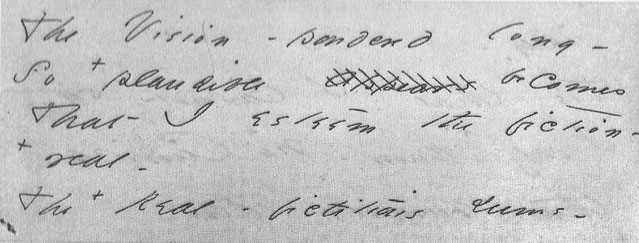 The Vision - pondered long -
So + plausible becomes
That I esteem the fiction -
+ real -
The + Real - fictitious seems -